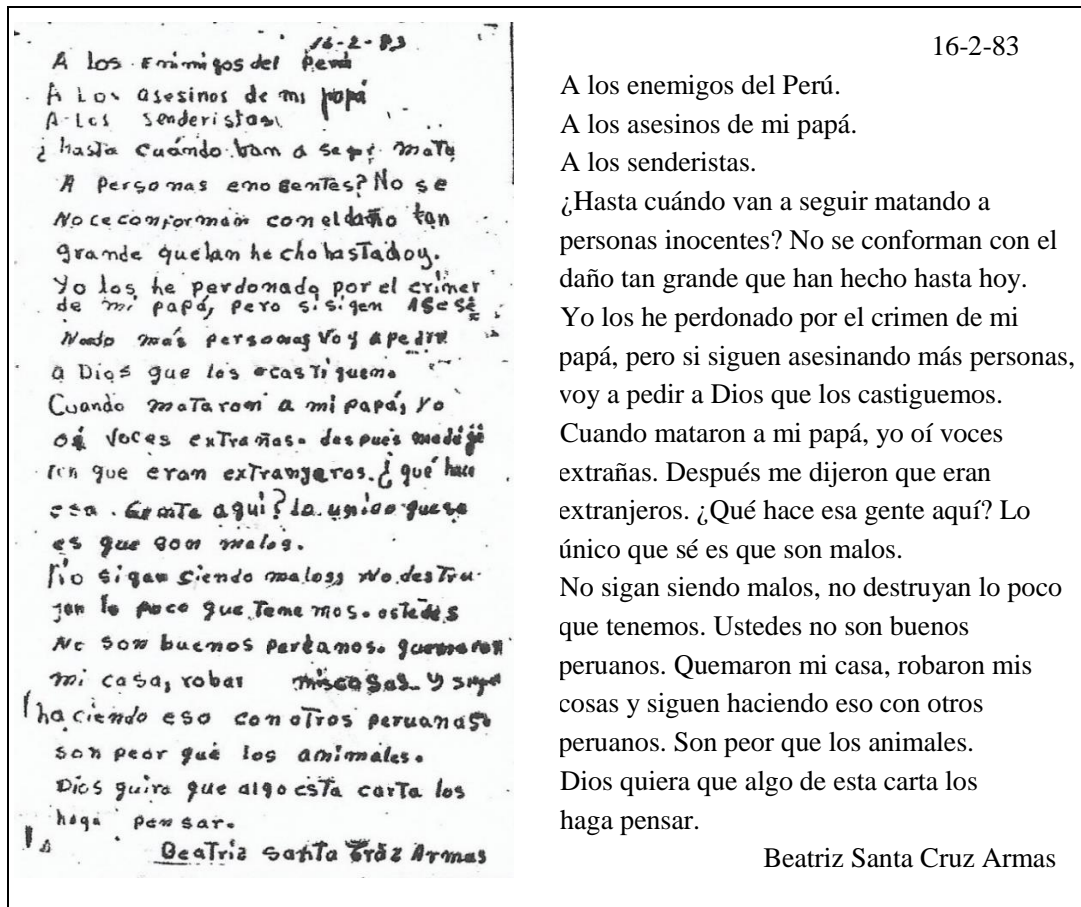 16-2-83
A los enimigos del Perú
A Los asesinos de mi papá
A Los senderistas
¿hasta cuándo ban a segir mata
A personas enosentes? No se
No ce conforman con el daño tan
grande quelan hecho hastadoy.
Yo los he perdonado por el crimen
de mi papá, pero si sigen Asesi
Nando más personas Voy a pedir
a Dios que los acastiguemo
Cuando mataron a mi papá, yo
oí voces extrañas. despues medije
ron que eran extranjeros. ¿qué hace
esa Gente aqui? Lo unico quese
es que son malos.
No sigan ciendo malos, No destru
jan lo poco que tenemos. ostedes
No son buenos peruanos. quemaron
mi casa, robar miscosas y sigen
haciendo eso con otros peruanos.
son peor qué los animales.
Dios quira que algo esta carta los
haga pensar.
Beatriz Santa Cruz Armas
16-2-83
A los enemigos del Perú.
A los asesinos de mi papá.
A los senderistas.
¿Hasta cuándo van a seguir matando a
personas inocentes? No se conforman con el
daño tan grande que han hecho hasta hoy.
Yo los he perdonado por el crimen de mi
papá, pero si siguen asesinando más personas,
voy a pedir a Dios que los castiguemos.
Cuando mataron a mi papá, yo oí voces
extrañas. Después me dijeron que eran
extranjeros. ¿Qué hace esa gente aquí? Lo
único que sé es que son malos.
No sigan siendo malos, no destruyan lo poco
que tenemos. Ustedes no son buenos
peruanos. Quemaron mi casa, robaron mis
cosas y siguen haciendo eso con otros
peruanos. Son peor que los animales.
Dios quiera que algo de esta carta los
haga pensar.
Beatriz Santa Cruz Armas